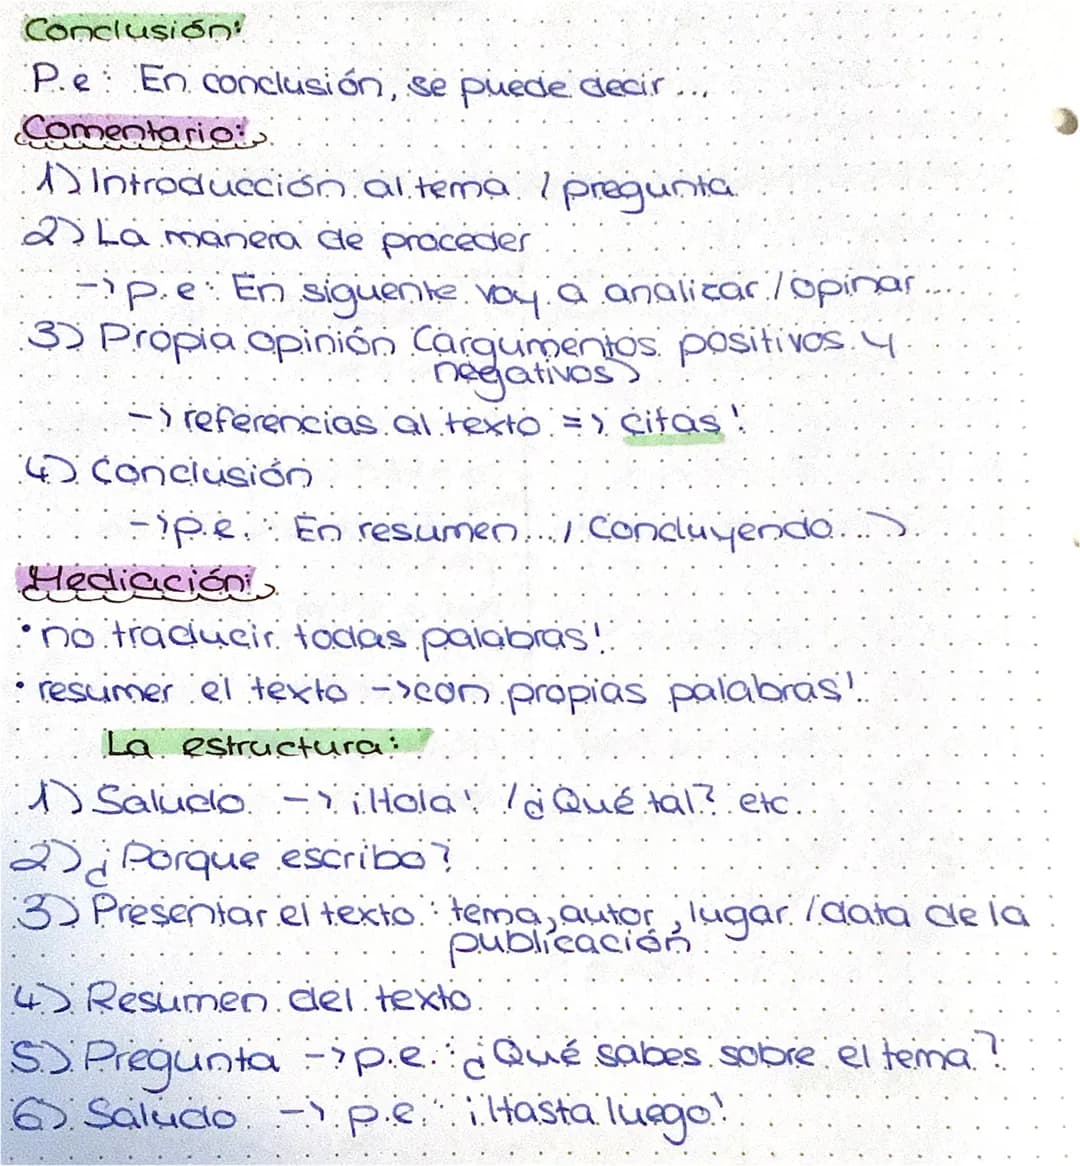 Conclusión:
P.e: En conclusión, se puede decir...
Comentario:
1) Introducción al tema / pregunta
2) La manera de proceder
-> p.e: En siguente voy a analizar / opinar...
3) Propia opinión (argumentos positivos y
negativos)
-> referencias al texto => citas!
4) Conclusión
-> p.e.: En resumen... / Concluyendo...)
Mediación:
• no traducir todas palabras!
• resumer el texto -> con propias palabras!
La estructura:
1) Saludo -> ¡Hola! / ¿Qué tál? etc.
2) ¿Porque escribo?
3) Presentar el texto: tema, autor, lugar / data de la
publicación
4) Resumen del texto
5) Pregunta -> p.e.: ¿Qué sabes sobre el tema?
6) Saludo -> p.e.: ¡Hasta luego!